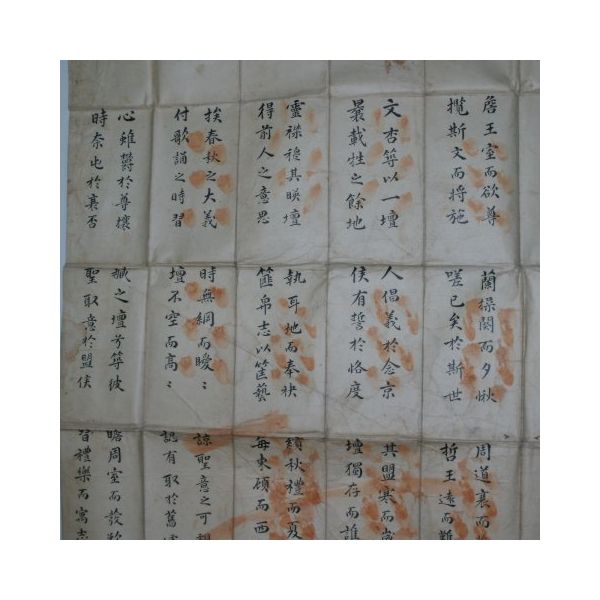 詹王室而欲尊
攬斯文而將施
文杏等以一壇
曩載牲之餘地
靈襟穆其暎壇
得前人之意思
挨春秋之大義
付歌誦之時習
心雖欝於尊攘
時奈屯於衰否
蘭操闋而夕愀
嗟已矣於斯世
人倡義於念京
侯有誓於恪度
執耳地而奉袂
篚帛志以筐藝
時無綱而曖〻
壇不空而高〻
之壇兮等彼
聖取意於盟侯
周道衰而
哲王遠而難
其盟寒而歲
壇獨存而誰
秋禮而夏
每東而西
諒聖意之可
認有取於舊
瞻周室而發歎
習禮樂而寓志